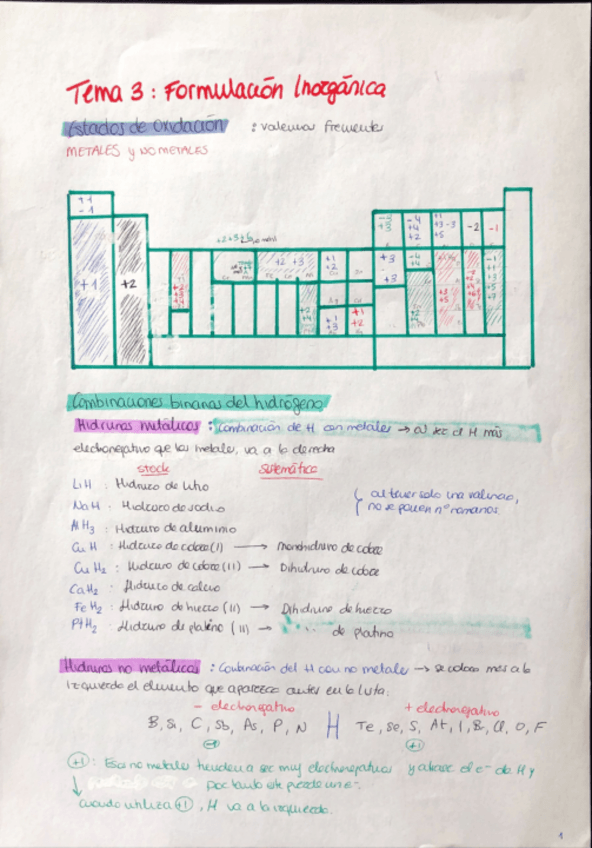 Tema 3: Formulación Inorgánica
Estados de Oxidación : valencias frecuentes
METALES y NO METALES
+1
-1
+1
+2
+2 +3
-2
-1
Combinaciones binarias del hidrógeno
Hidruros metálicos : Combinación de H con metales → al ser el H más
electronegativo que los metales, va a la derecha
stock sistemática
LiH : Hidruro de litio
NaH : Hidruro de sodio
al tener solo una valencia,
no se ponen nº romanos.
AlH3 : Hidruro de aluminio
CuH : Hidruro de cobre (I) → Monohidruro de cobre
CuH2 : Hidruro de cobre (II) → Dihidruro de cobre
CaH2 : Hidruro de calcio
FeH2 : Hidruro de hierro (II) → Dihidruro de hierro
PtH2 : Hidruro de platino (II) → de platino
Hidruros no metálicos : Combinación del H con no metales → se coloca mas a la
izquierda el elemento que aparezca antes en la lista:
- electronegativo + electronegativo
B, Si, C, Sb, As, P, N H Te, Se, S, At, I, Br, Cl, O, F
-1 +1
+1 : Esos no metales tienden a ser muy electronegativos y atraer el e- de H y
por tanto este pierde un e-.
cuando utiliza +1, H va a la izquierda.
1